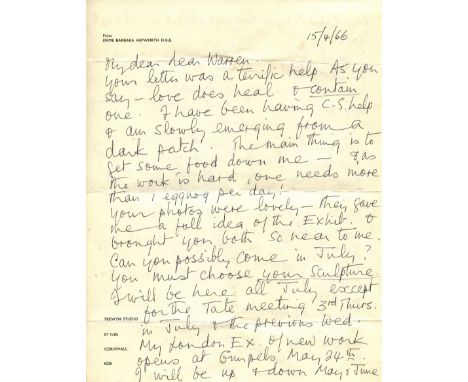 From:
DAME BARBARA HEPWORTH D.B.E.
15/4/66
My dear dear Warren.
your letter was a terrific help. As you
say – love does heal & contain
one. I have been having C.S. help
& am slowly emerging from a
dark patch. The main thing is to
get some food down me – & as
the work is hard, one needs more
than 1 eggnog per day!
Your photos were lovely – they gave
me a full idea of the Exhib. &
brought you both so near to me.
Can you possibly come in July?
You must choose your Sculpture.
I will be here all July except
for the Tate meeting 3rd Thurs.
in July & the previous Wed.
My London Ex. of new work
opens at Gimpels May 24th.
I will be up & down May & June
TREWYN STUDIO
ST IVES
CORNWALL
6226